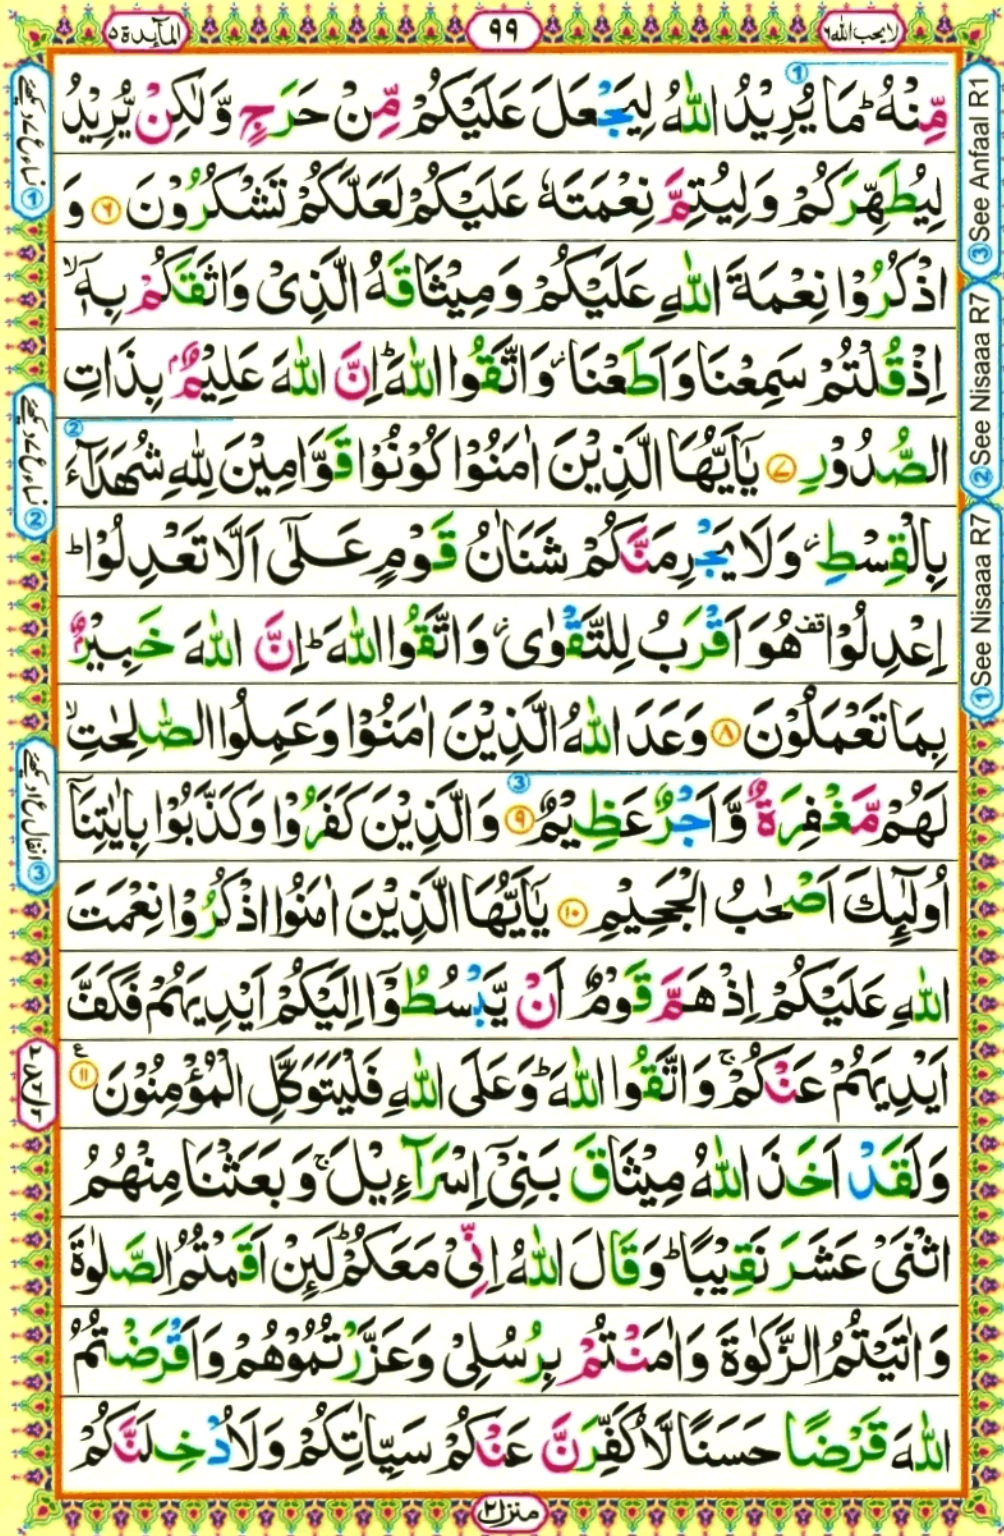 لا يحب الله ٦
٩٩
المآئدة ٥
مِّنْهُ ؕ مَا يُرِيْدُ اللّٰهُ لِيَجْعَلَ عَلَيْكُمْ مِّنْ حَرَجٍ وَّلٰكِنْ يُّرِيْدُ
لِيُطَهِّرَكُمْ وَلِيُتِمَّ نِعْمَتَهٗ عَلَيْكُمْ لَعَلَّكُمْ تَشْكُرُوْنَ ۶ وَ
اذْكُرُوْا نِعْمَةَ اللّٰهِ عَلَيْكُمْ وَمِيْثَاقَهُ الَّذِىْ وَاثَقَكُمْ بِهٖۤ ۙ
اِذْ قُلْتُمْ سَمِعْنَا وَاَطَعْنَا ؗ وَاتَّقُوا اللّٰهَ ؕ اِنَّ اللّٰهَ عَلِيْمٌۢ بِذَاتِ
الصُّدُوْرِ ۷ يٰۤاَيُّهَا الَّذِيْنَ اٰمَنُوْا كُوْنُوْا قَوَّامِيْنَ لِلّٰهِ شُهَدَآءَ
بِالْقِسْطِ ؗ وَلَا يَجْرِمَنَّكُمْ شَنَاٰنُ قَوْمٍ عَلٰٓى اَلَّا تَعْدِلُوْا ؕ
اِعْدِلُوْا قف هُوَ اَقْرَبُ لِلتَّقْوٰى ؗ وَاتَّقُوا اللّٰهَ ؕ اِنَّ اللّٰهَ خَبِيْرٌۢ
بِمَا تَعْمَلُوْنَ ۸ وَعَدَ اللّٰهُ الَّذِيْنَ اٰمَنُوْا وَعَمِلُوا الصّٰلِحٰتِ ۙ
لَهُمْ مَّغْفِرَةٌ وَّاَجْرٌ عَظِيْمٌ ۹ وَالَّذِيْنَ كَفَرُوْا وَكَذَّبُوْا بِاٰيٰتِنَاۤ
اُولٰٓئِكَ اَصْحٰبُ الْجَحِيْمِ ۱۰ يٰۤاَيُّهَا الَّذِيْنَ اٰمَنُوا اذْكُرُوْا نِعْمَتَ
اللّٰهِ عَلَيْكُمْ اِذْ هَمَّ قَوْمٌ اَنْ يَّبْسُطُوْۤا اِلَيْكُمْ اَيْدِيَهُمْ فَكَفَّ
اَيْدِيَهُمْ عَنْكُمْ ۚ وَاتَّقُوا اللّٰهَ ؕ وَعَلَى اللّٰهِ فَلْيَتَوَكَّلِ الْمُؤْمِنُوْنَ ۱۱ ع
وَلَقَدْ اَخَذَ اللّٰهُ مِيْثَاقَ بَنِىْۤ اِسْرَآءِيْلَ ۚ وَبَعَثْنَا مِنْهُمُ
اثْنَىْ عَشَرَ نَقِيْبًا ؕ وَقَالَ اللّٰهُ اِنِّىْ مَعَكُمْ ؕ لَئِنْ اَقَمْتُمُ الصَّلٰوةَ
وَاٰتَيْتُمُ الزَّكٰوةَ وَاٰمَنْتُمْ بِرُسُلِىْ وَعَزَّرْتُمُوْهُمْ وَاَقْرَضْتُمُ
اللّٰهَ قَرْضًا حَسَنًا لَّاُكَفِّرَنَّ عَنْكُمْ سَيِّاٰتِكُمْ وَلَاُدْخِلَنَّكُمْ
منزل ٢
③See Anfaal R1
②See Nisaaa R7
①See Nisaaa R7
① نساء ع ۷ دیکھئے
② نساء ع ۷ دیکھئے
③ انفال ع ۱ دیکھئے